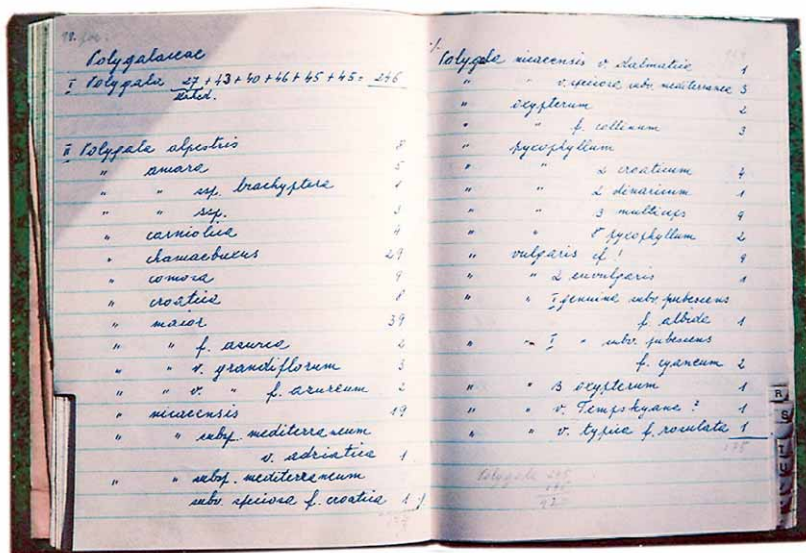 Polygalaceae
I Polygala 27+43+40+46+45+45= 246
II Polygala alpestris 8
" amara 5
" " ssp. brachyptera 1
" " ssp. 3
" carniolica 4
" chamaebuxus 29
" comosa 9
" croatica 8
" maior 39
" " f. azurea 2
" " v. grandiflorum 3
" " v. " f. azureum 2
" nicaeensis 19
" " subsp. mediterraneum
v. adriatica 1
" " subsp. mediterraneum
subv. speciosa f. croatica 1 ./.
./.
Polygala nicaeensis v. dalmatica 1
" " v. speciosa subv. mediterranea 3
" oxypterum 2
" " f. collinum 3
" pycophyllum
" " 2 croaticum
" " 2 dinarium 1
" " 3 multiceps 9
" " 8 pycophyllum 2
" vulgaris cf! 9
" " 2 euvulgaris 1
" " I genuina subv. pubescens
f. albida 1
" " I " subv. pubescens
f. cyaneum 2
" " 3 oxypterum 1
" " v. Tempskyana ? 1
" " v. typica f. rosulata 1
175
Polygala
R
S